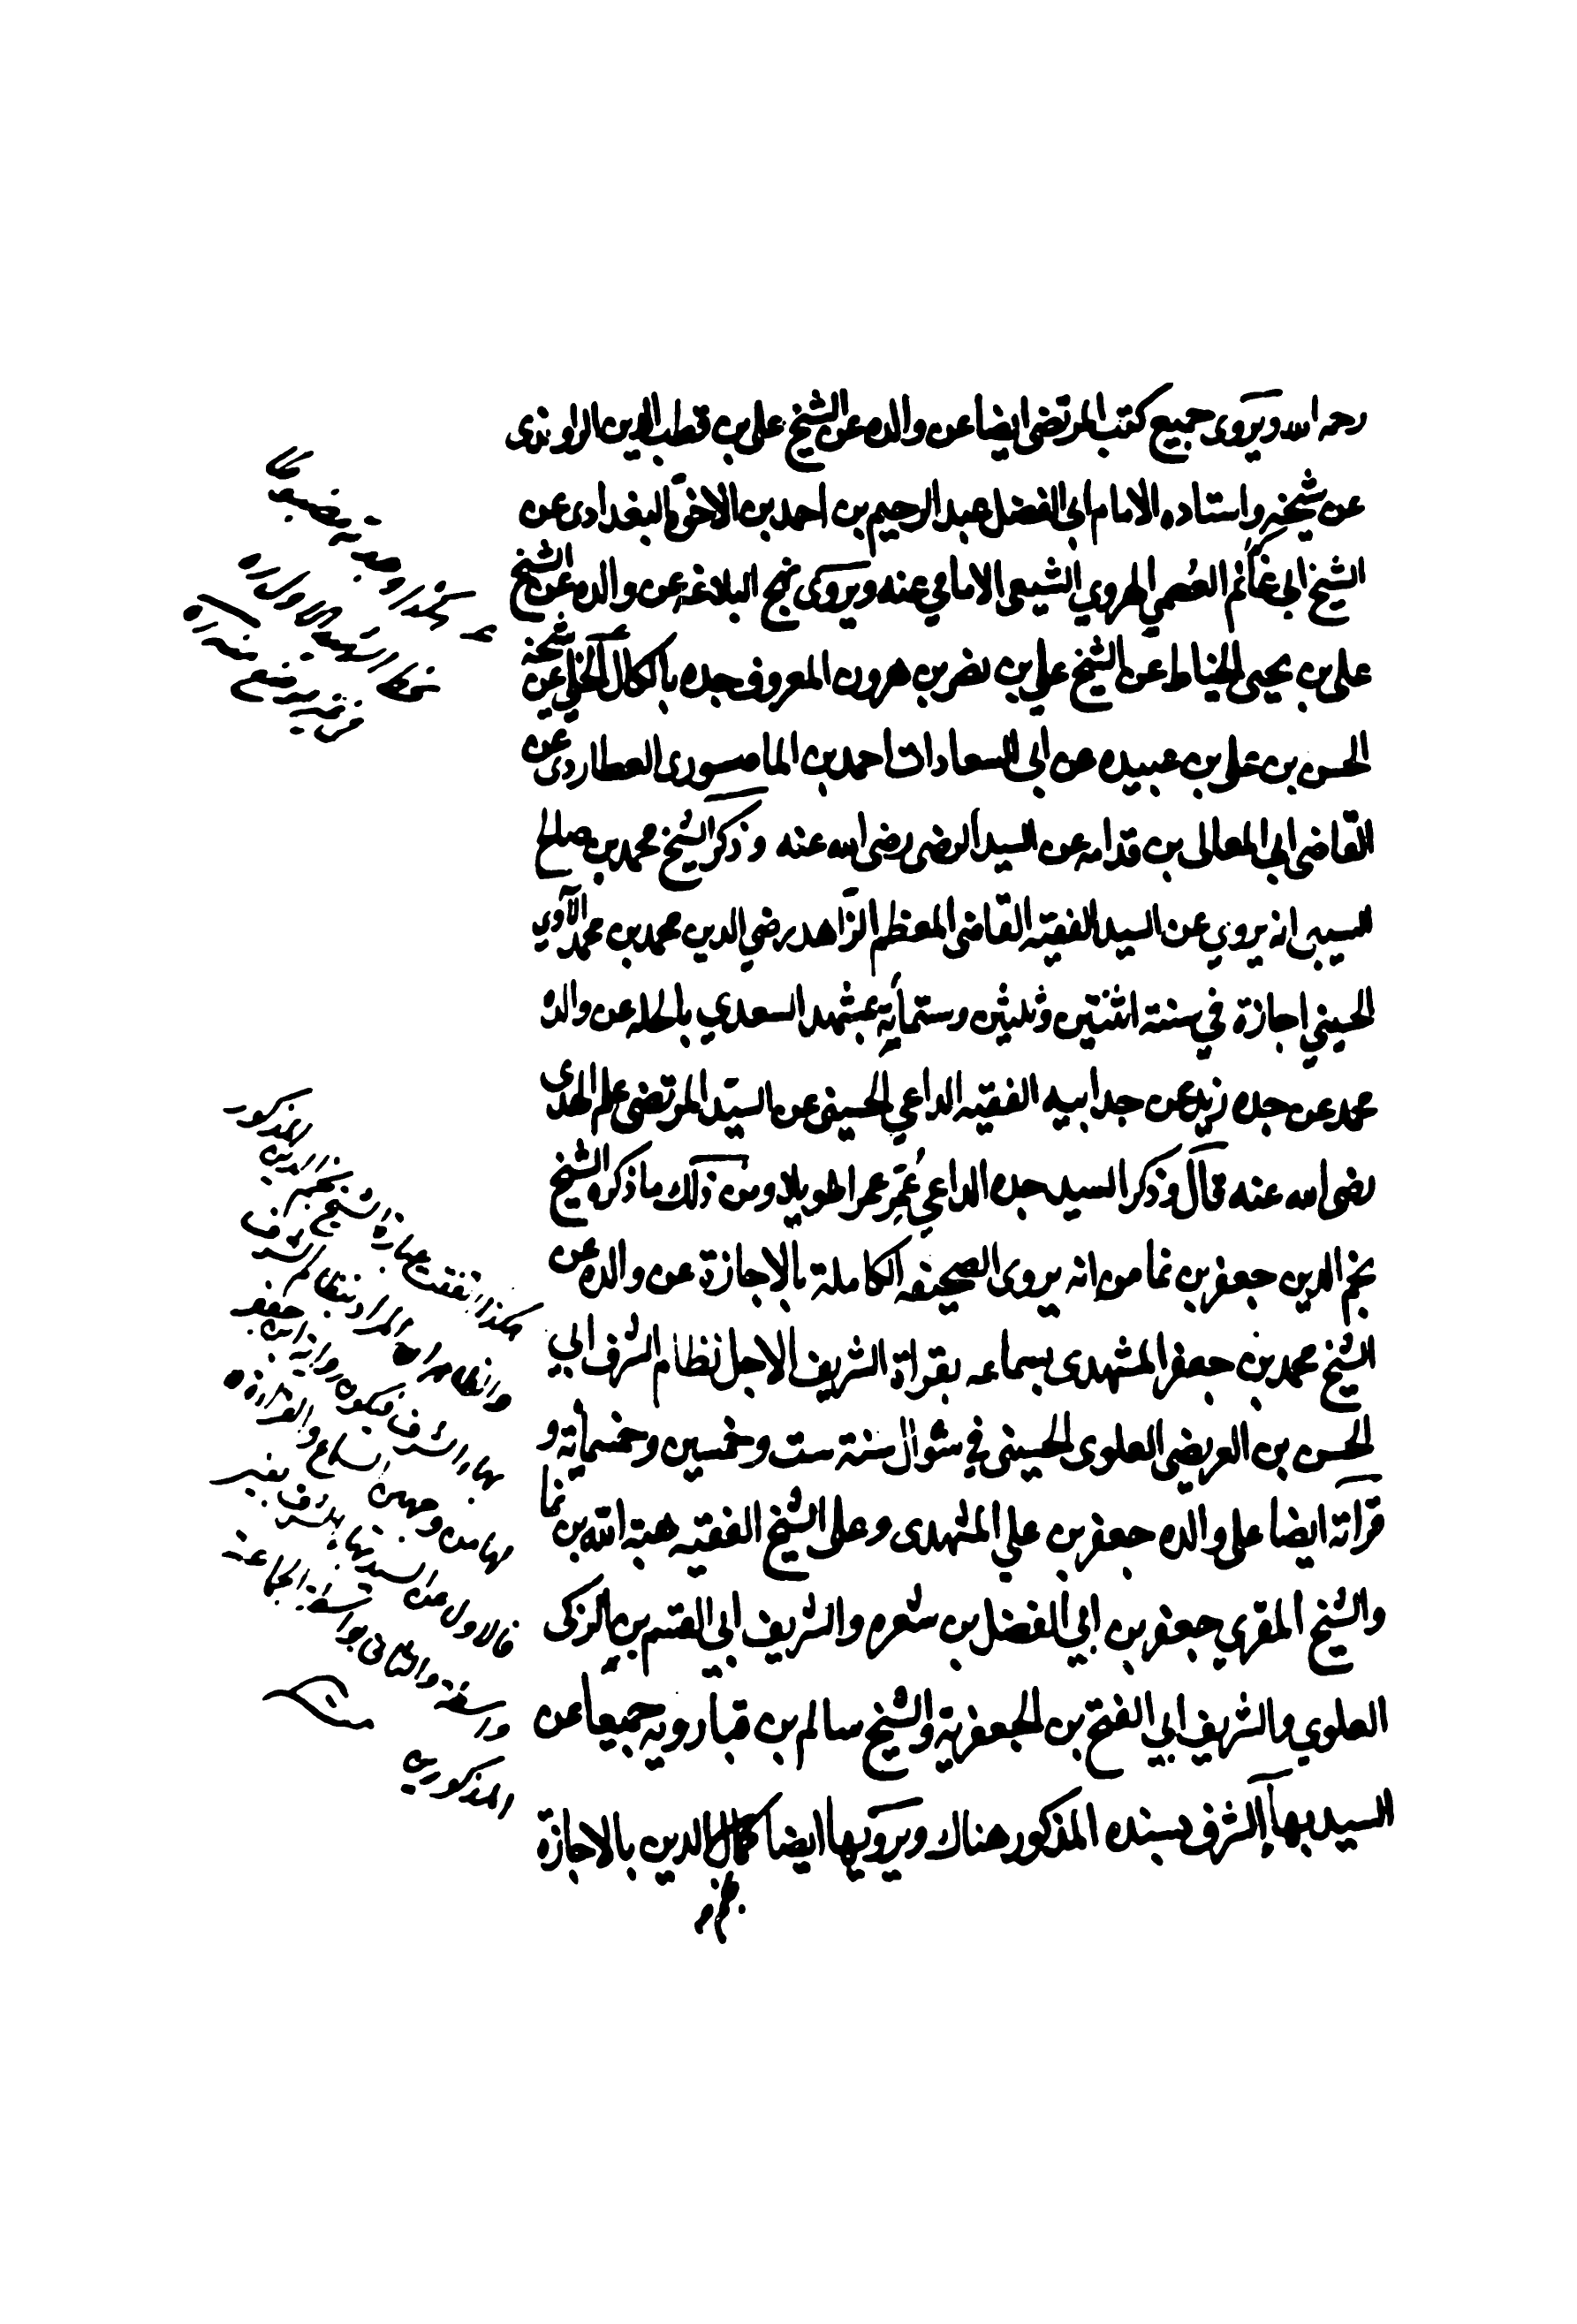 رحمه الله ويروى جميع كتب المرتضى ايضا عن والده عن الشيخ على بن قطب الدين الراوندى
عن شيخه واستاده الامام ابى الفضل عبد الرحيم بن احمد بن الاخوة البغدادى عن
الشيخ ابى غانم العصمي الهروي الشيعى الامامي عنه ويروى نهج البلاغه عن والده عن الشيخ
على بن يحيى الخياط عن الشيخ علي بن نصر بن هرون المعروف جده بالكال الحلي عن شيخه
الحسن بن على بن عبيده عن ابى السعادات احمد بن الماصورى العطاردى عن
القاضى ابى المعالى بن قدامه عن السيد الرضى رضى الله عنه وذكر الشيخ محمد بن صالح
السيبى انه يروي عن السيد الفقيه القاضى المعظم الزاهد رضي الدين محمد بن محمد الآوي
الحسيني اجازة في سنة اثنتين وثلثين وستمأية بمشهد السعدي بالحله عن والده
محمد عن جده زيد عن جد ابيه الفقيه الداعي الحسينى عن السيد المرتضى علم الهدى
رضى الله عنه قال وذكر السيد جده الداعي عُمِّر عمرا طويلا ومن ذلك ما ذكره الشيخ
نجم الدين جعفر بن نما من انه يروى الصحيفه الكاملة بالاجازة عن والده عن
الشيخ محمد بن جعفر المشهدى بسماعه بقراءة الشريف الاجل نظام الشرف ابي
الحسن بن العريضى العلوى الحسينى في شوال سنة ست وخمسين وخمسمأئة و
قرآته ايضا على والده جعفر بن علي المشهدى وعلى الشيخ الفقيه هبة الله بن نما
والشيخ المقري جعفر بن ابي الفضل بن شعره والشريف ابي القسم بن الزكى
العلوي والشريف ابي الفتح بن الجعفرية والشيخ سالم بن قبارويه جميعا عن
السيد بهاء الشرف بسنده المذكور هناك ويرويها ايضا كمال الدين بالاجازة
هكذا اتفقت عبارة الشيخ نجم الدين المذكور
المراد بنظام الشرف
بهاء الشرف فيكون
من وجهين السماع والقراءة
فالاول عن السيد بهاء الشرف بغير
واسطة والثانى بواسطة الجماعة
المذكورين